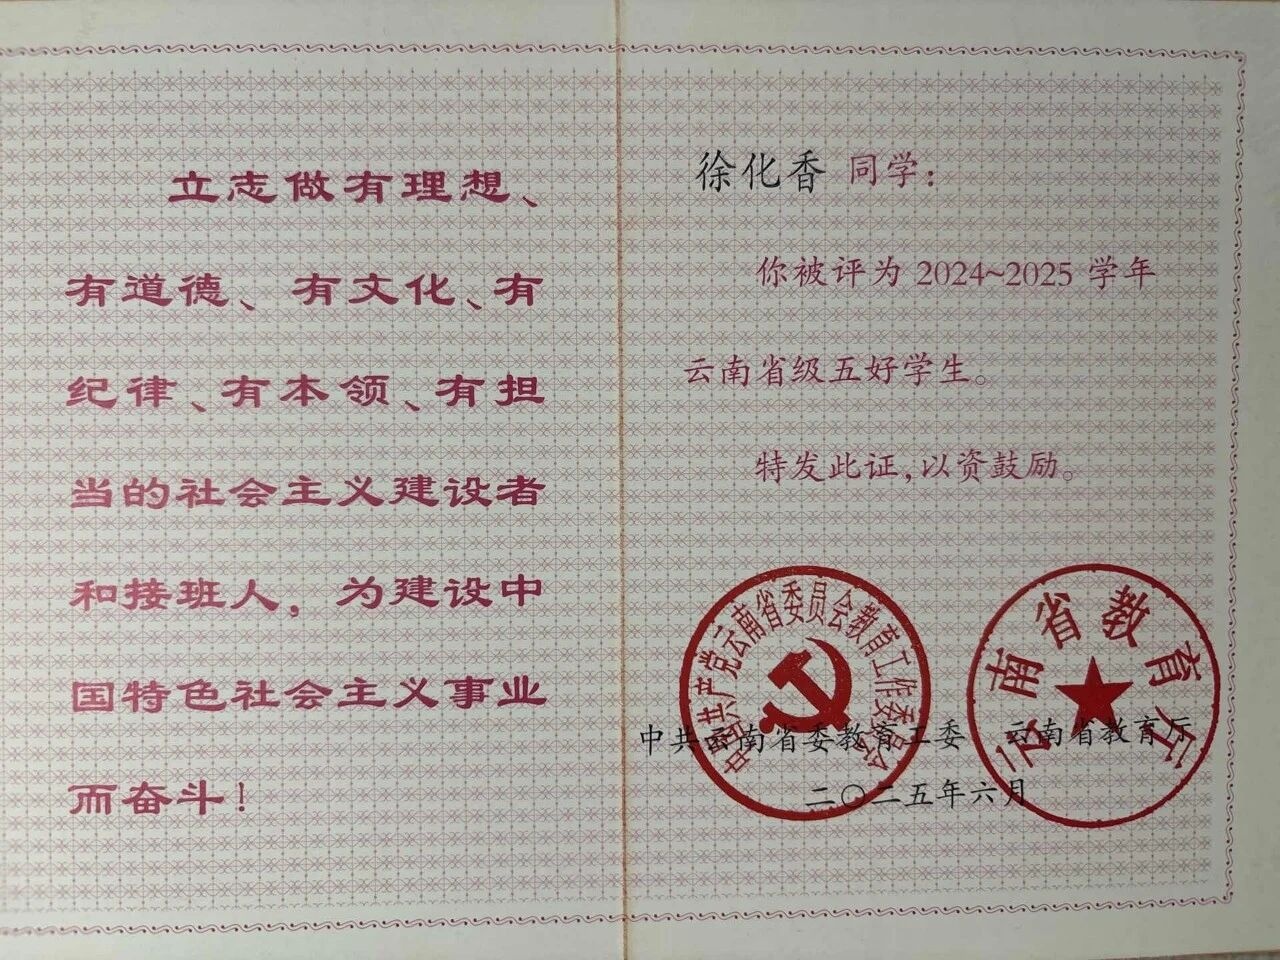 立志做有理想、
有道德、有文化、有
纪律、有本领、有担
当的社会主义建设者
和接班人，为建设中
国特色社会主义事业
而奋斗！
徐化香 同学：
你被评为 2024~2025 学年
云南省级五好学生。
特发此证，以资鼓励。
中国共产党云南省委员会教育工作委员会
云南省教育厅
中共云南省委教育工委 云南省教育厅
二〇二五年六月